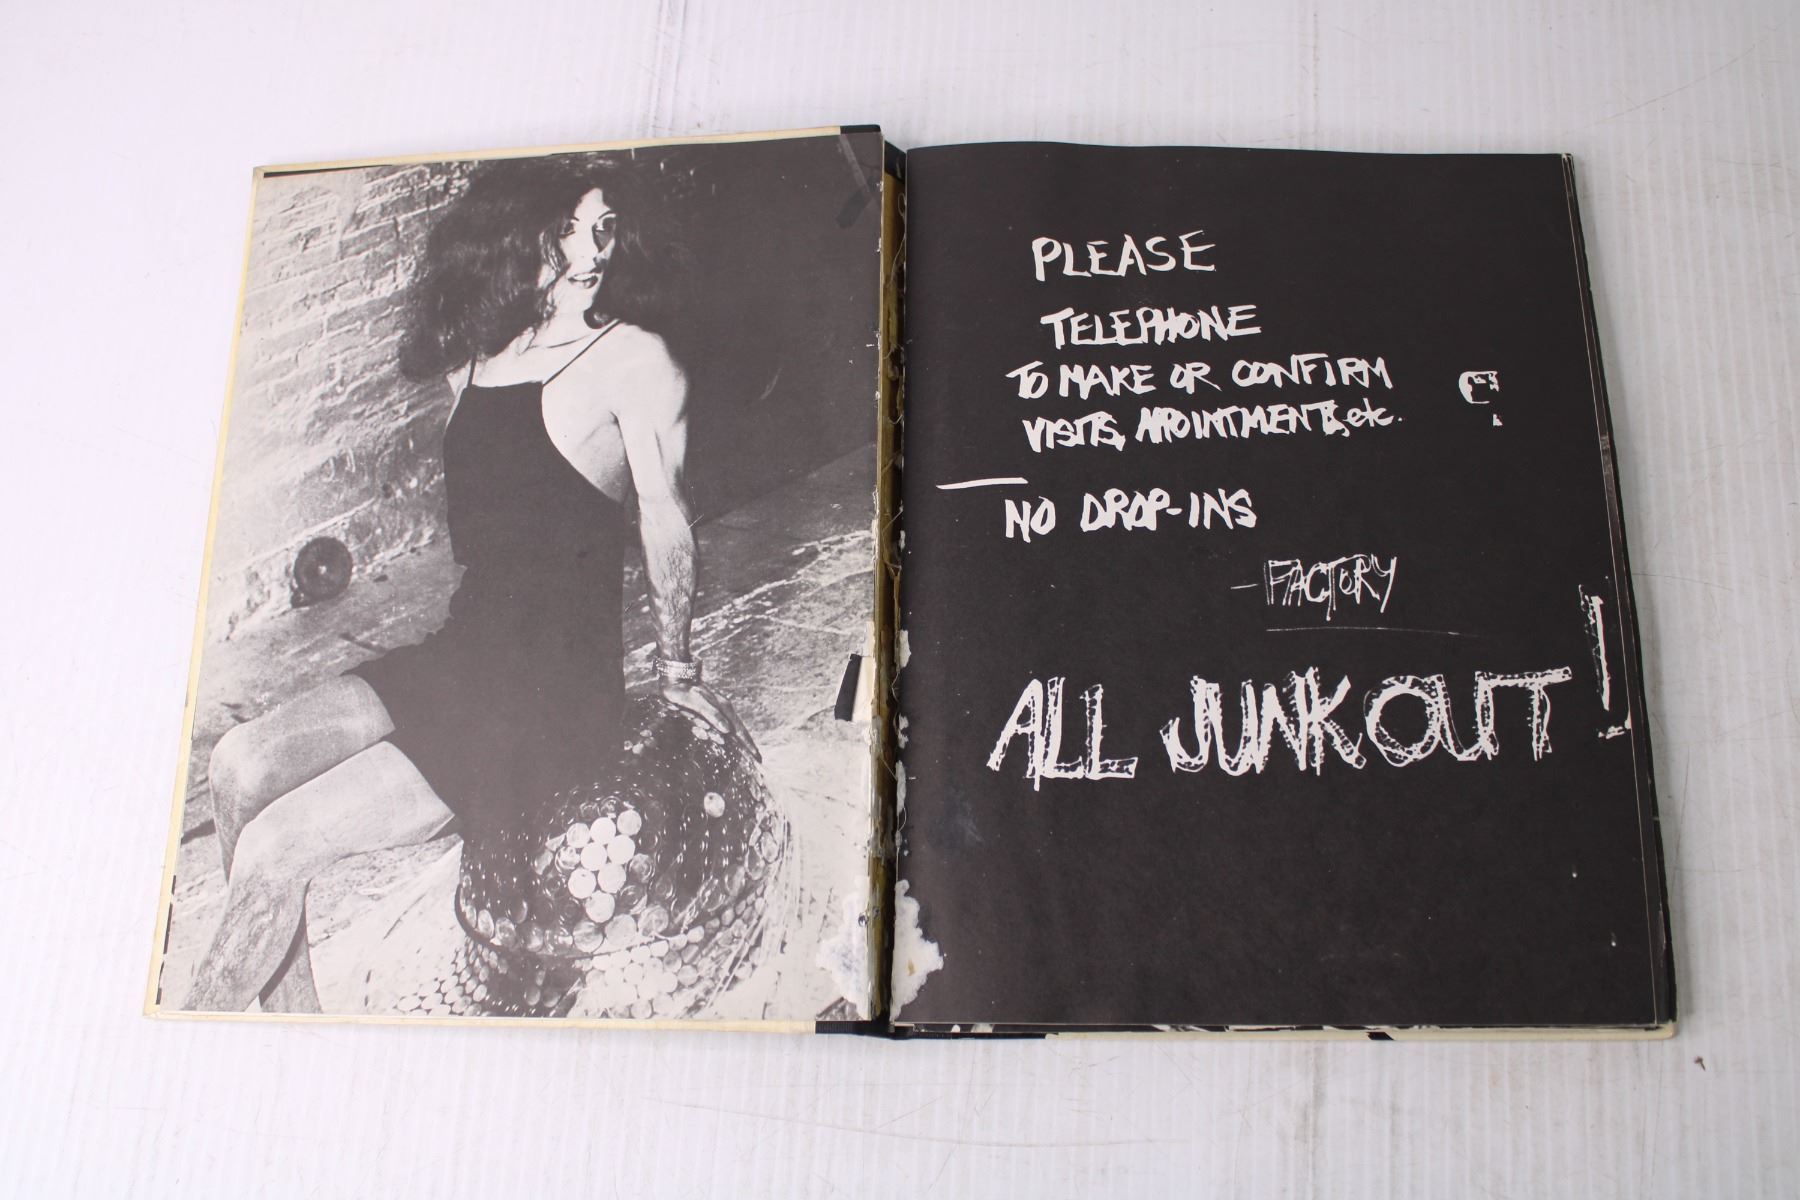 PLEASE
TELEPHONE
TO MAKE OR CONFIRM
VISITS, APPOINTMENTS, etc.
NO DROP-INS
-FACTORY
ALL JUNK OUT!